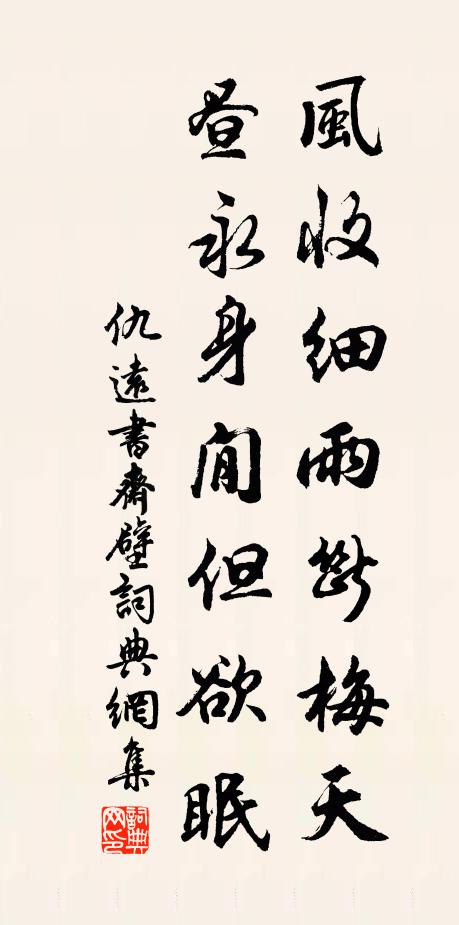 風收細雨斷梅天
晝永身閒但欲眠
仇遠書齋壁詞典網集
詞典网印